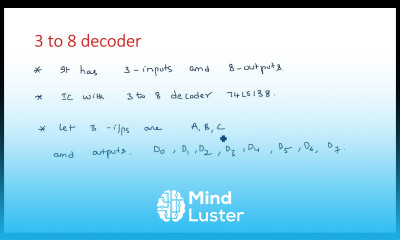 3 to 8 decoder
* It has 3-inputs and 8-outputs.
* IC with 3 to 8 decoder 74LS138.
* Let 3-i/ps are A, B, C
and outputs. D0, D1, D2, D3, D4, D5, D6, D7.
Mind
Luster